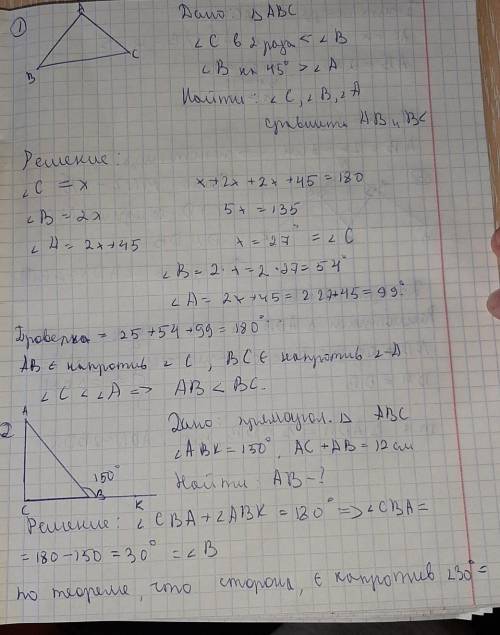 1
A
B
C
Дано: Δ ABC
∠C в 2 раза < ∠B
∠B на 45° > ∠A
Найти: ∠C, ∠B, ∠A
сравнить AB и BC
Решение:
∠C = x
x+2x+2x+45=180
∠B = 2x
5x = 135
∠A = 2x+45
x = 27° = ∠C
∠B = 2·x = 2·27 = 54°
∠A = 2x+45 = 2·27+45 = 99°
Проверка = 25+54+99 = 180°
AB ∈ напротив ∠C, BC ∈ напротив ∠A
∠C < ∠A => AB < BC.
2
A
150°
C
B
K
Дано прямоугол. Δ ABC
∠ABK = 150°, AC + AB = 12 см
Найти: AB-?
Решение: ∠CBA + ∠ABK = 180° => ∠CBA =
= 180-150 = 30° = ∠B
по теореме, что сторона, ∈ напротив ∠30° =